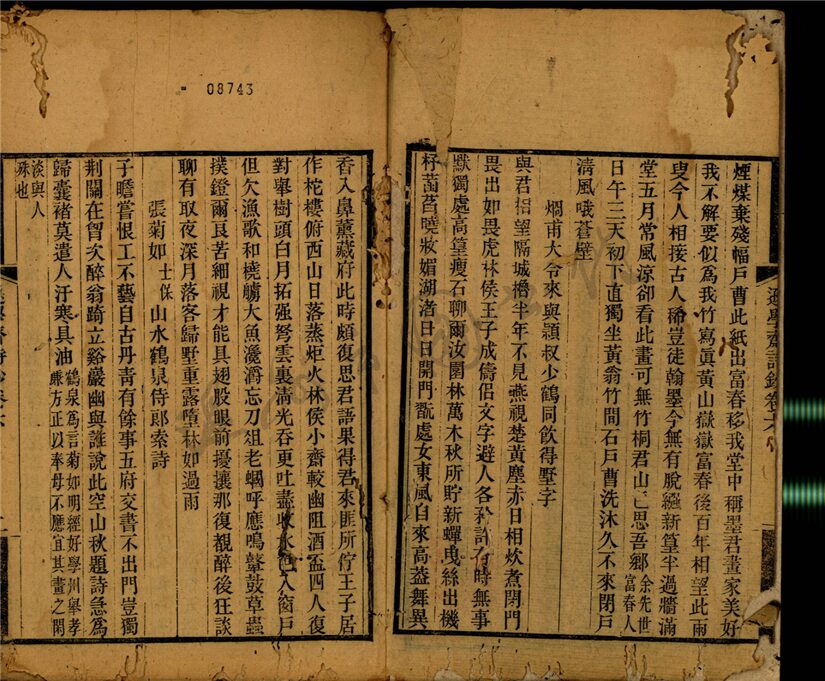 08743
煙煤棄殘幅戶曹此紙出富春移我堂中稱墨君畫家美好
我不解要似爲我竹寫眞黃山嶽嶽富春後百年相望此兩
叟今人相接古人稀豈徒翰墨今無有脫繃新篁半過牆滿
堂五月常風涼卻看此畫可無竹桐君山上思吾鄉余先世富春人
日午三天初下直獨坐黃翁竹間石戶曹洗沐久不來閉戶
清風哦蒼壁
爓甫大令來與潁叔少鶴同飲得墅字
與君相望隔城櫓半年不見燕視楚黃塵赤日相炊煮閉門
畏出如畏虎林侯王子成儔侶文字避人各矜許有時無事
默獨處高篁瘦石聊爾汝園林萬木秋所貯新蟬曳絲出機
杼菡萏曉妝媚湖渚日日開門翫處女東風自來高蓋舞異
香入鼻薰藏府此時頗復思君語果得君來匪所佇王子居
作柁樓俯西山日落蒸炬火林侯小齋較幽阻酒盃四人復
對舉樹頭白月拓强弩雲裏淸光吞更吐盡收水色入窗戶
但欠漁歌和橈艣大魚瀺灂忘刀俎老蜩呼應鳴鼙鼓草蟲
撲鐙爾良苦細視才能具翅股眼前擾攘那復覩醉後狂談
聊有取夜深月落客歸墅重露墮林如過雨
張菊如士保山水鶴泉侍郎索詩
子瞻嘗恨工不藝自古丹靑有餘事五府交書不出門豈獨
荆關在曾次醉翁踦立谿巖幽與誰說此空山秋題詩急爲
歸囊褚莫遣人汙寒具油鶴泉爲言菊如明經好學州舉孝
廉方正以奉母不應宜其畫之閒
淡與人
殊也